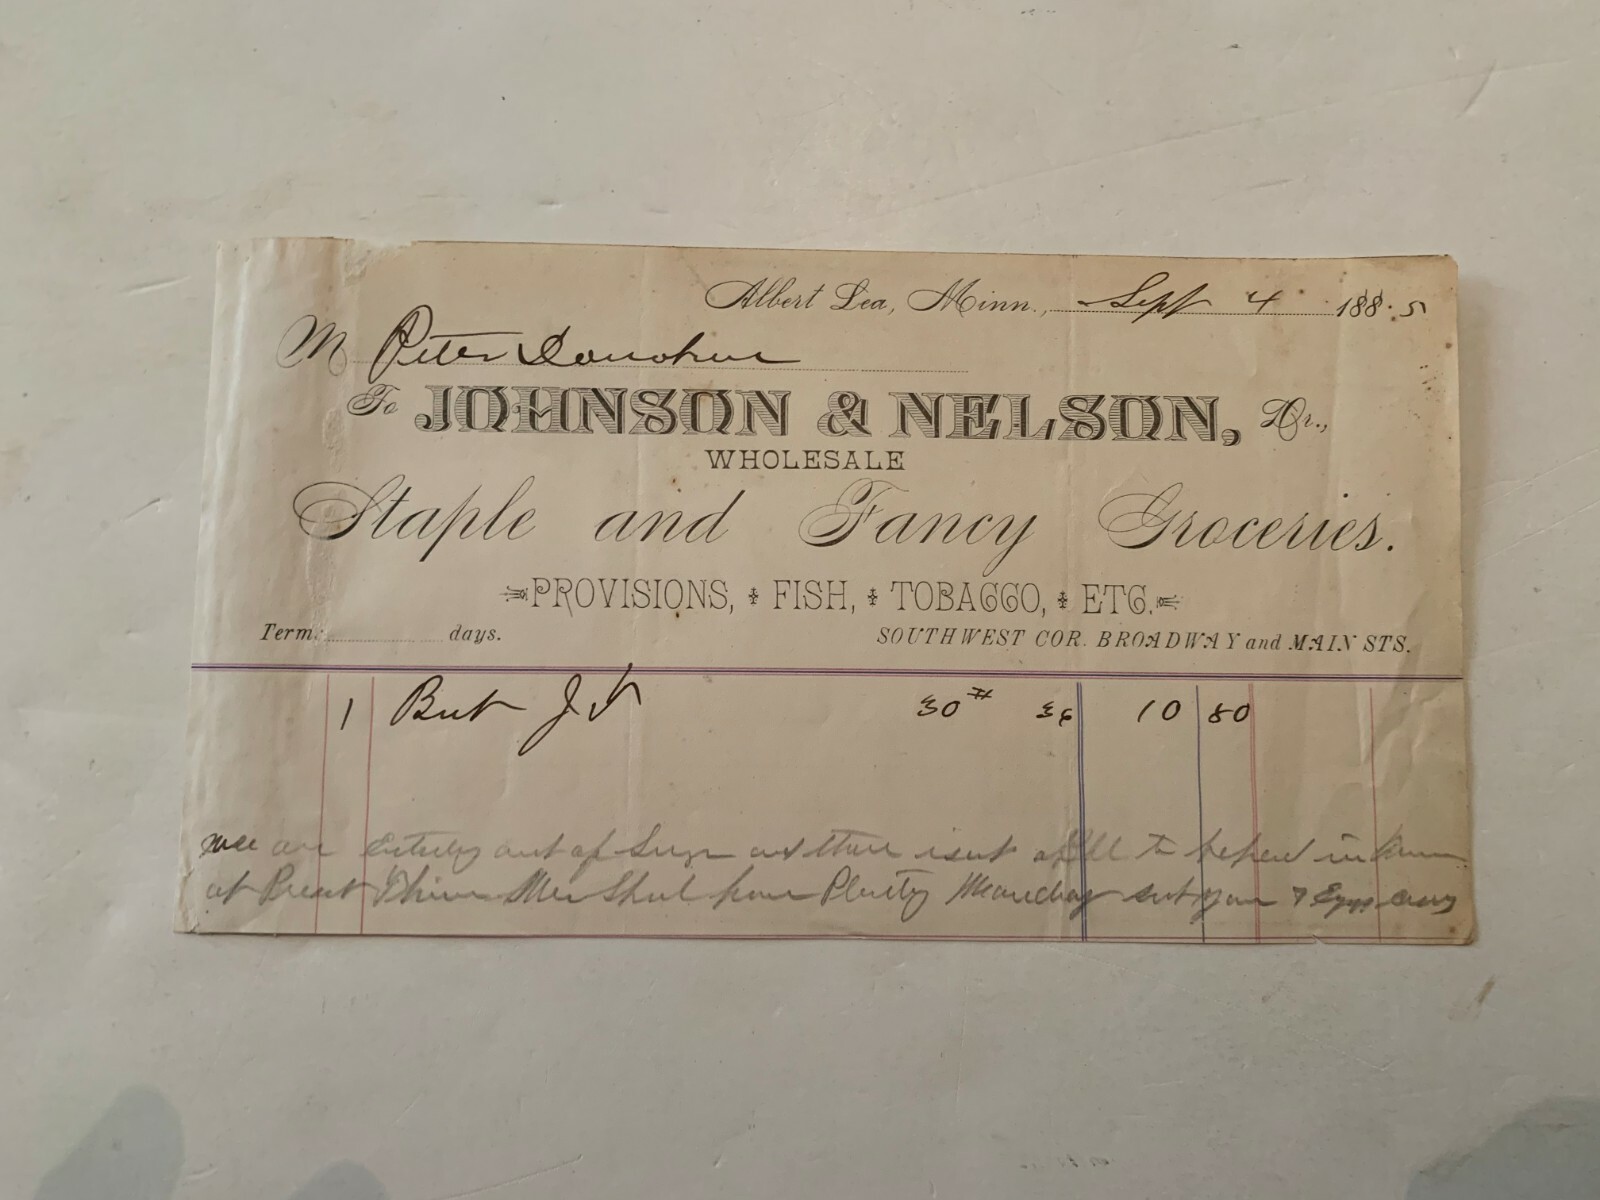 Albert Lea, Minn., Sept 4 1885
M Peter Donohue
To JOHNSON & NELSON, Dr.,
WHOLESALE
Staple and Fancy Groceries.
PROVISIONS, FISH, TOBACCO, ETC.
Terms days.
SOUTHWEST COR. BROADWAY and MAIN STS.
1 30# 36 10 80
are out of and there isent to be had in
at Shall have Plenty Monday